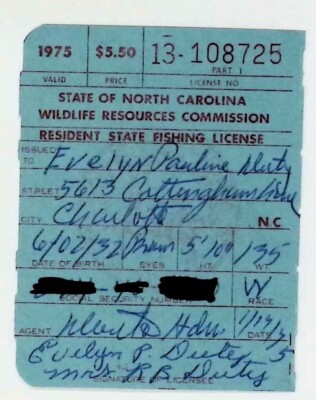 1975 $5.50 13-108725
VALID PRICE PART 1 LICENSE NO
STATE OF NORTH CAROLINA
WILDLIFE RESOURCES COMMISSION
RESIDENT STATE FISHING LICENSE
ISSUED TO Evelyn Pauline Duty
STREET 5613 Cottingham Lane
CITY Charlotte N.C
6/02/32 Brown 5'10" 135
DATE OF BIRTH EYES HT. WT.
W
SOCIAL SECURITY NUMBER RACE
AGENT Hdw
DATE
Evelyn P. Duty
Mrs R B Duty
SIGNATURE OF LICENSEE